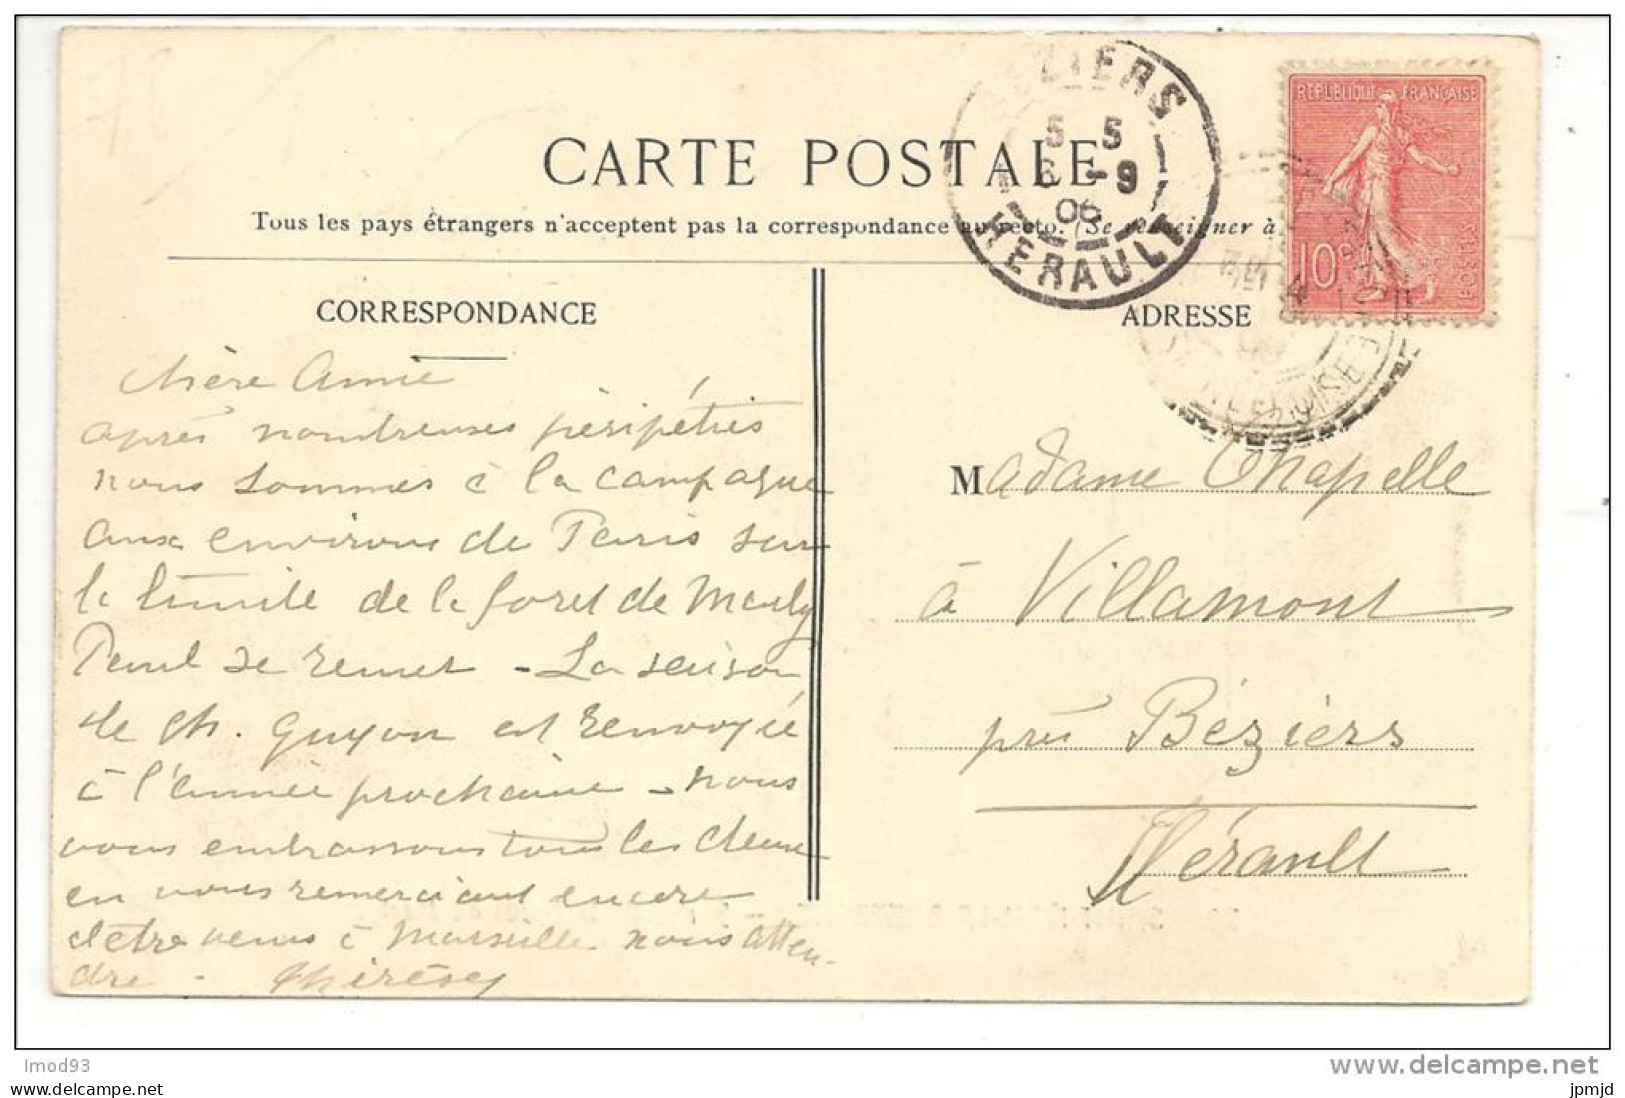 BÉZIERS
5 5
6 -9
06
HERAULT
REPUBLIQUE FRANÇAISE
10c
POSTES
SEINE & OISE
CARTE POSTALE
Tous les pays étrangers n'acceptent pas la correspondance au recto. (Se renseigner à
CORRESPONDANCE
Chère Amie
après nombreuses péripéties
nous sommes à la campagne
aux environs de Paris sur
la limite de la foret de Marly
Paul se remet - La saison
de Ch. Guyon est renvoyée
à l'année prochaine - nous
vous embrassons tous les deux
en vous remerciant encore
d'être venus à Marseille nous atten-
dre -
ADRESSE
Madame Chapelle
à Villamont
près Béziers
Hérault
Imod93
www.delcampe.net
www.delcampe.net
jpmjd